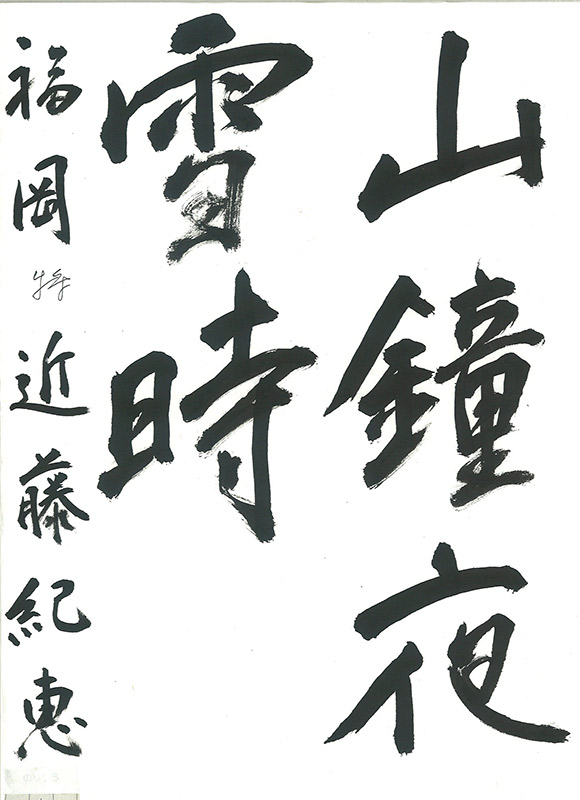 山鐘夜
雪時
福岡 特 近藤紀恵